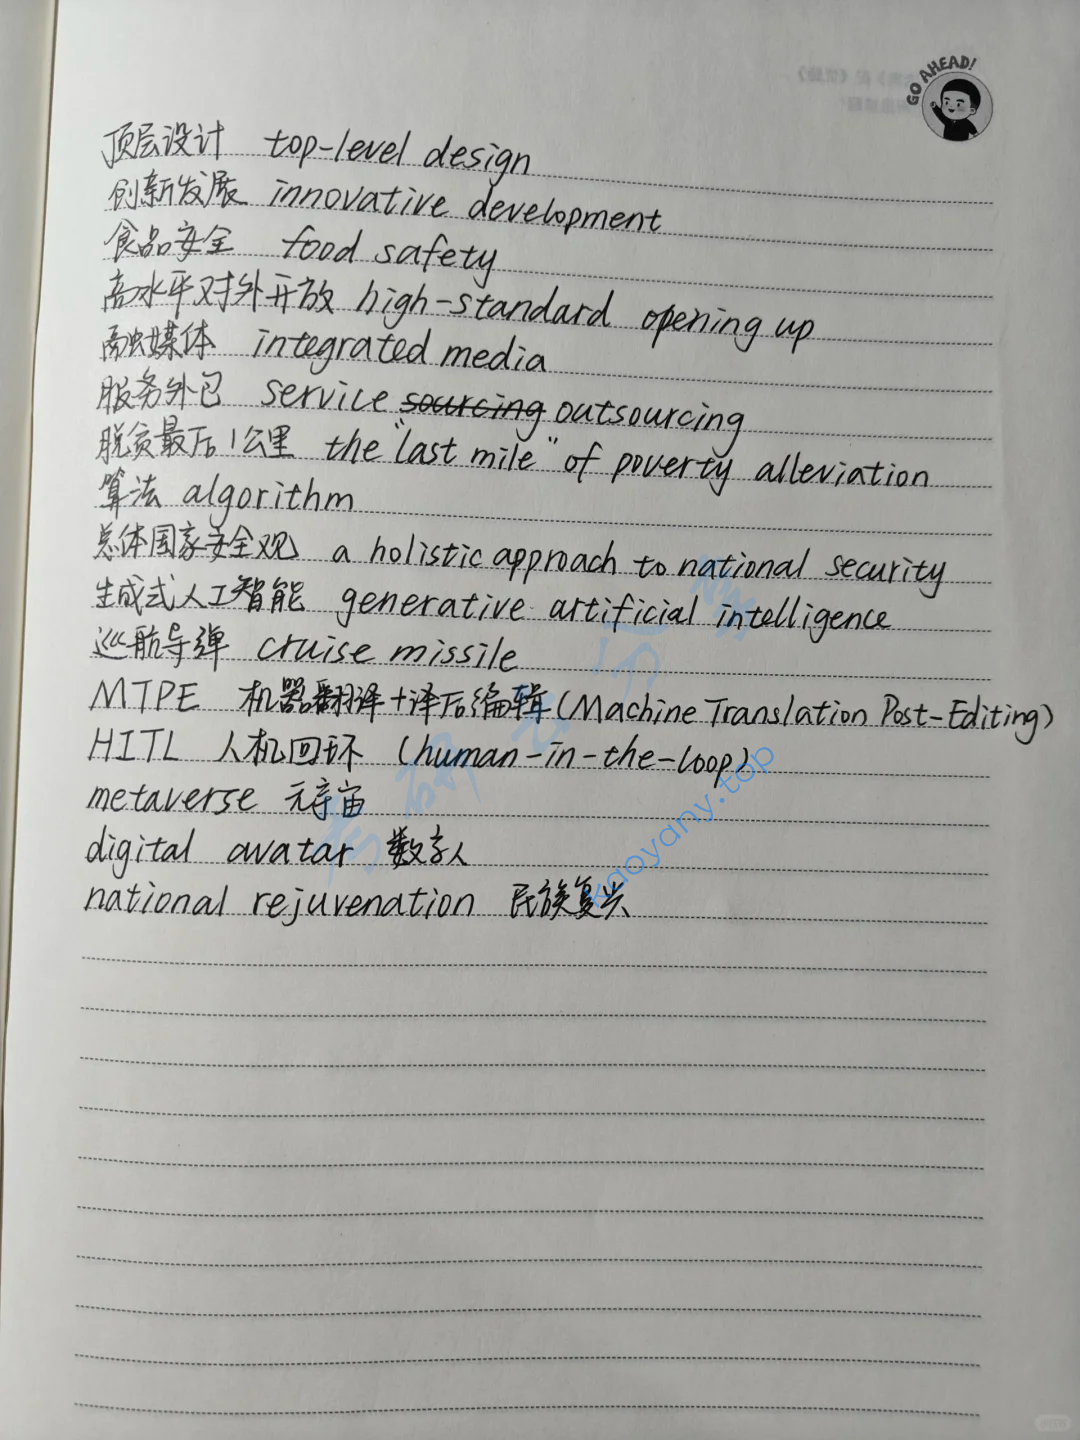 GO AHEAD!
顶层设计 top-level design
创新发展 innovative development
食品安全 food safety
高水平对外开放 high-standard opening up
融媒体 integrated media
服务外包 service sourcing outsourcing
脱贫最后1公里 the "last mile" of poverty alleviation
算法 algorithm
总体国家安全观 a holistic approach to national security
生成式人工智能 generative artificial intelligence
巡航导弹 cruise missile
MTPE 机器翻译+译后编辑(Machine Translation Post-Editing)
HITL 人机回环 (human-in-the-loop)
metaverse 元宇宙
digital avatar 数字人
national rejuvenation 民族复兴
kaoyany.top